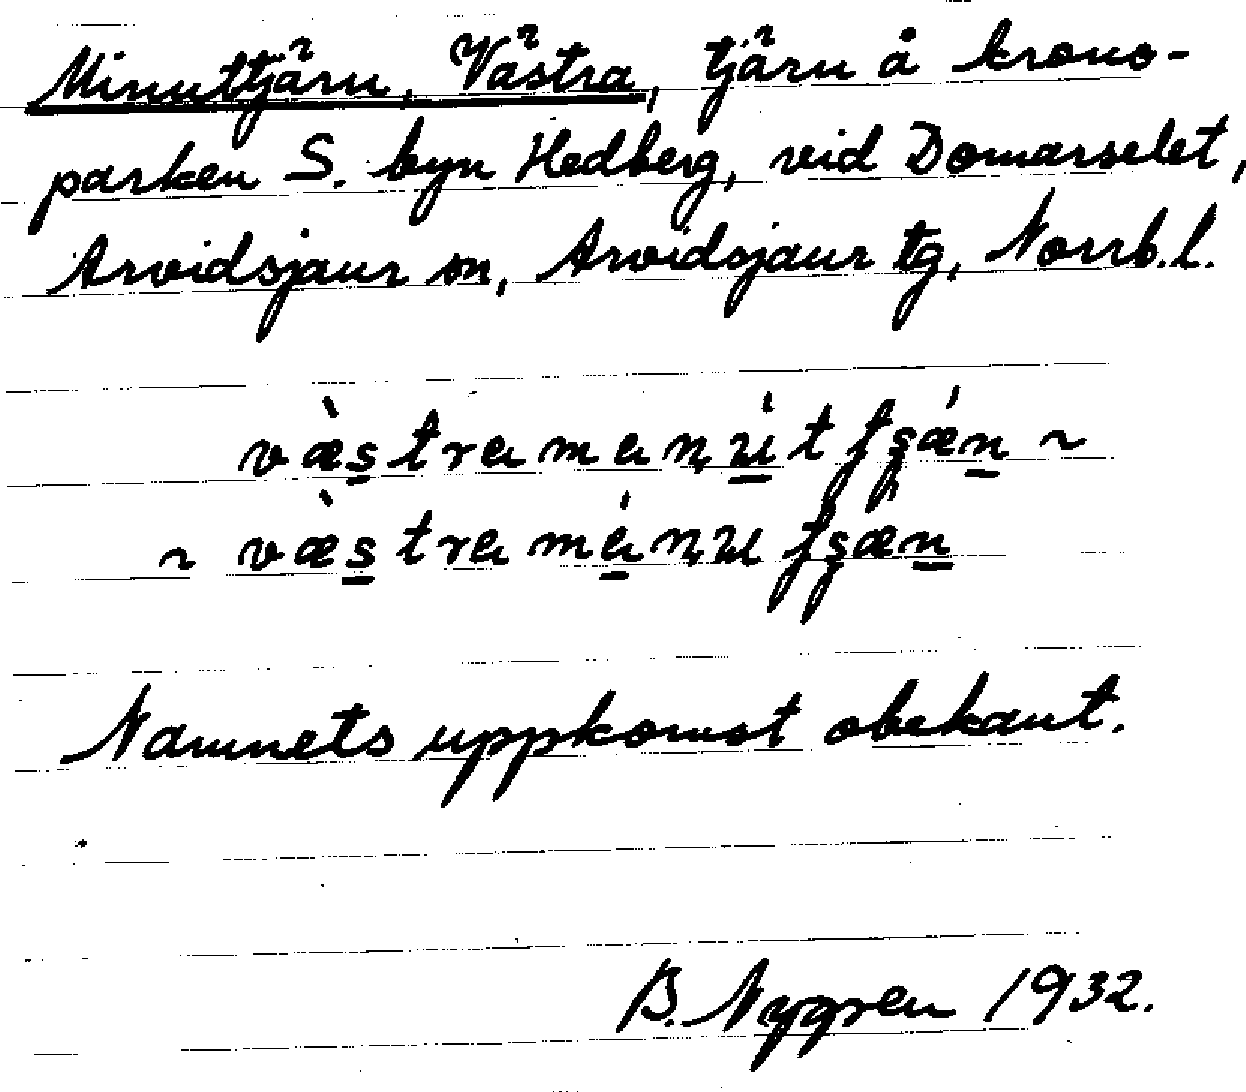 Minuttjärn, Västra, tjärn å krono-
parken S. byn Hedberg, vid Domarselet,
Arvidsjaur sn, Arvidsjaur tg, Norrb.l.
væ̀stramanút tʃǽn ~
~ væ̀stramánu tʃæn
Namnets uppkomst obekant.
B. Nygren 1932.